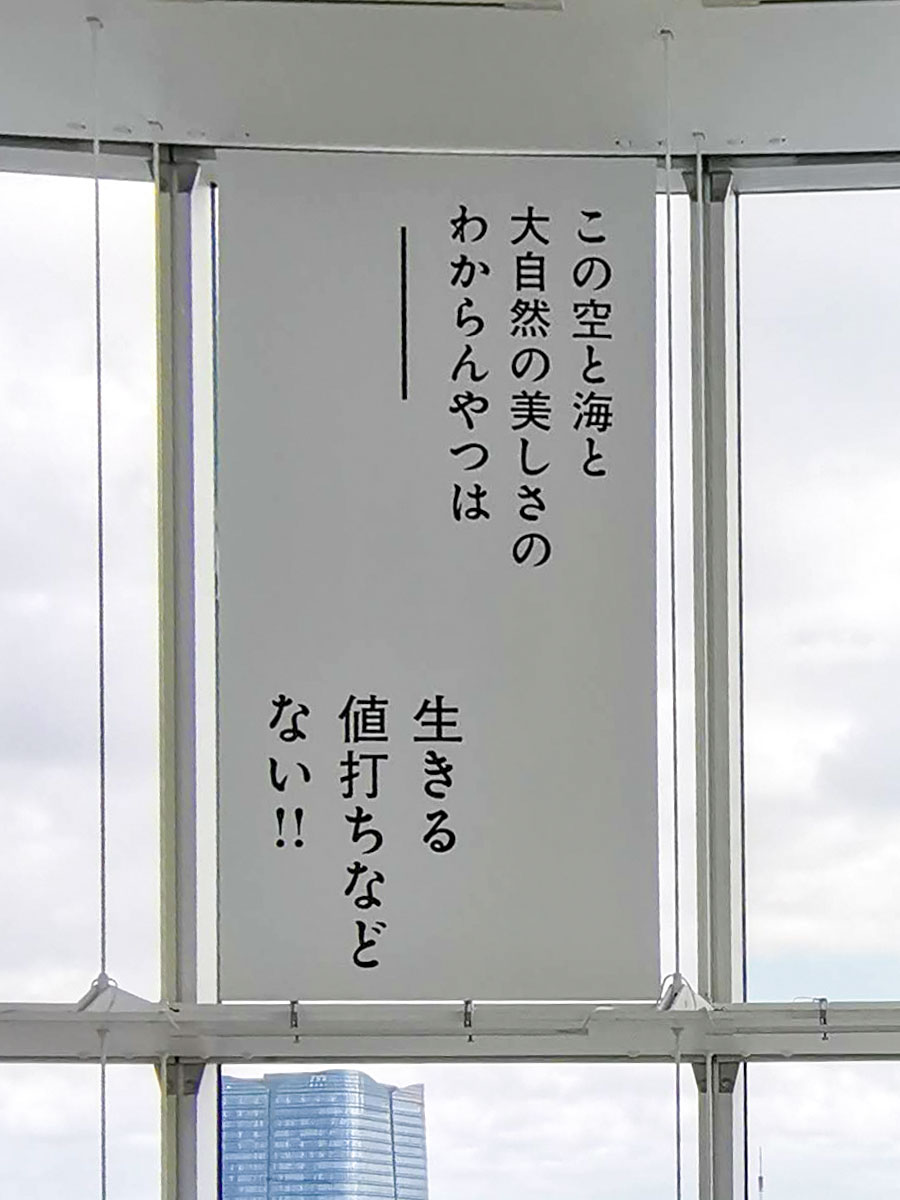 この空と海と
大自然の美しさの
わからんやつは
生きる
値打ちなど
ない!!